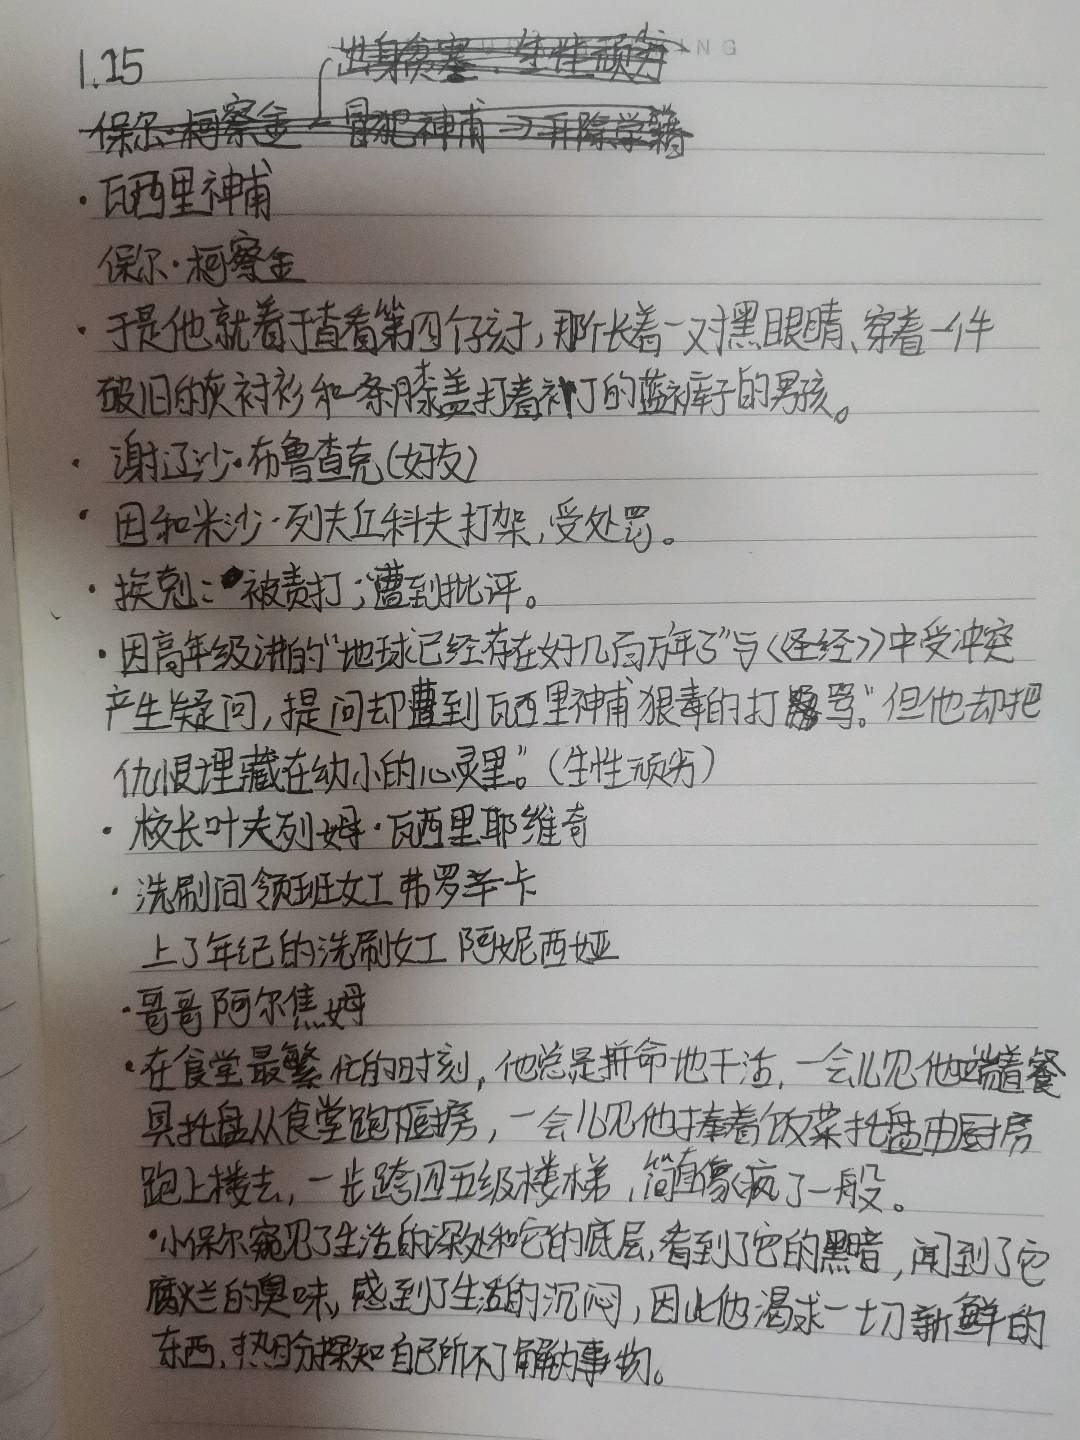 1.15
出身贫寒·生性顽劣
保尔·柯察金 冒犯神甫→开除学籍
·瓦西里神甫
保尔·柯察金
·于是他就着手查看第四个孩子，那个长着一对黑眼睛、穿着一件
破旧的灰衬衫和一条膝盖打着补丁的蓝裤子的男孩。
·谢辽沙·布鲁查克(好友)
·因和米沙·列夫丘科夫打架，受处罚。
·挨剋：被责打；遭到批评。
·因高年级讲的"地球已经存在好几百万年了"与《圣经》中受冲突
产生疑问，提问却遭到瓦西里神甫狠毒的打骂。"但他却把
仇恨埋藏在幼小的心灵里。"(生性顽劣)
·校长叶夫列姆·瓦西里耶维奇
·洗刷间领班女工弗罗辛卡
上了年纪的洗刷女工阿妮西娅
·哥哥阿尔焦姆
·在食堂最繁忙的时刻，他总是拼命地干活，一会儿见他端着餐
具托盘从食堂跑下厨房，一会儿见他捧着饭菜托盘由厨房
跑上楼去，一步跨四五级楼梯，简直像疯了一般。
·小保尔窥见了生活的深处和它的底层，看到了它的黑暗，闻到了它
腐烂的臭味，感到了生活的沉闷，因此他渴求一切新鲜的
东西，热切探知自己所不了解的事物。